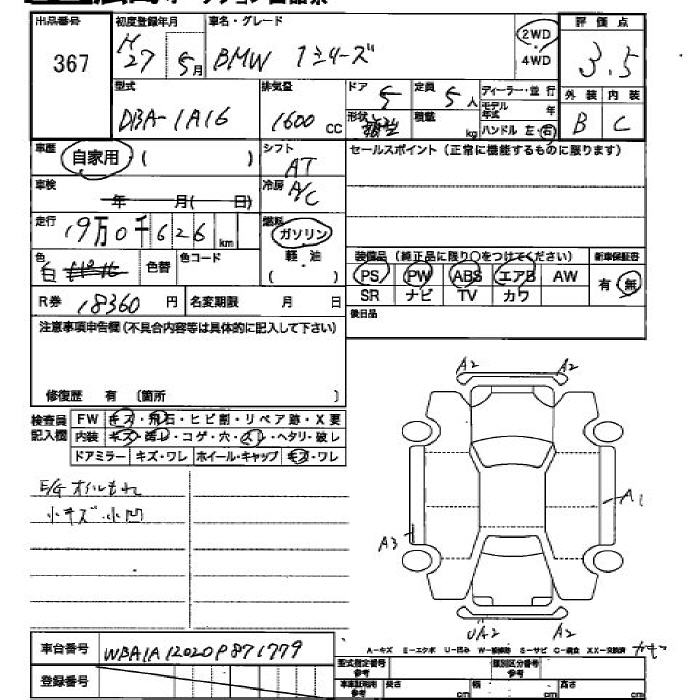 出品番号 初度登録年月 車名・グレード 2WD 評価点
367 H27 5月 BMW 1シリーズ 4WD 3.5
型式 排気量 ドア 定員 ディーラー・並行 外装 内装
DBA-1A16 1600 CC 5 5人 モデル年式 年 B C
形状 積載 kg ハンドル 左・右
車歴 自家用 ( ) シフト AT セールスポイント (正常に機能するものに限ります)
車検 年 月( 日) 冷房 A/C
走行 19万0千626 km 燃料 ガソリン
色 白 色替 色コード 軽・油 ( )
装備品 (純正品に限り○をつけてください) 新車保証書
PS PW ABS エアB AW 有・無
SR ナビ TV カワ
R券 18360 円 名変期限 月 日 後日品
注意事項申告欄 (不具合内容等は具体的に記入して下さい)
修復歴 有 〔箇所 〕
検査員記入欄 FW キズ・飛石・ヒビ割・リペア跡・X要
内装 キズ・汚レ・コゲ・穴・スレ・ヘタリ・破レ
ドアミラー キズ・ワレ ホイール・キャップ キズ・ワレ
E/G オイルもれ
小キズ・小凹
A2 A2
A1
A3
UA2 A2
車台番号 WBA1A12020P871779
登録番号
A-キズ E-エクボ U-凹み W-補修跡 S-サビ C-腐食 XX-交換済
型式指定番号 参考 類別区分番号 参考
車車証明用 参考 長さ cm 幅 cm 高さ cm